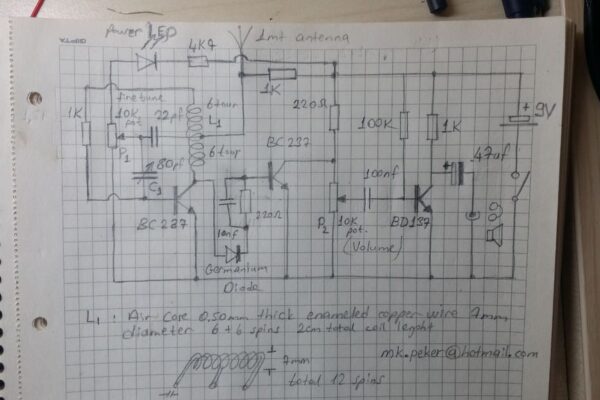 Power LED
4K7
1mt antenna
1K
fine tune
10K
pot
P1
22pf
6 turn
L1
6 turn
1K
80pf
C1
BC 237
220Ω
BC 237
100K
1K
9V
+
47uf
100nf
220Ω
10nf
P2
10K
pot.
(Volume)
BD 137
Germanium
Diode
L1 : Air Core 0.50mm thick enameled copper wire 7mm
diameter 6+6 spins 2cm total coil lenght
7mm
total 12 spins
mk.peker@hotmail.com